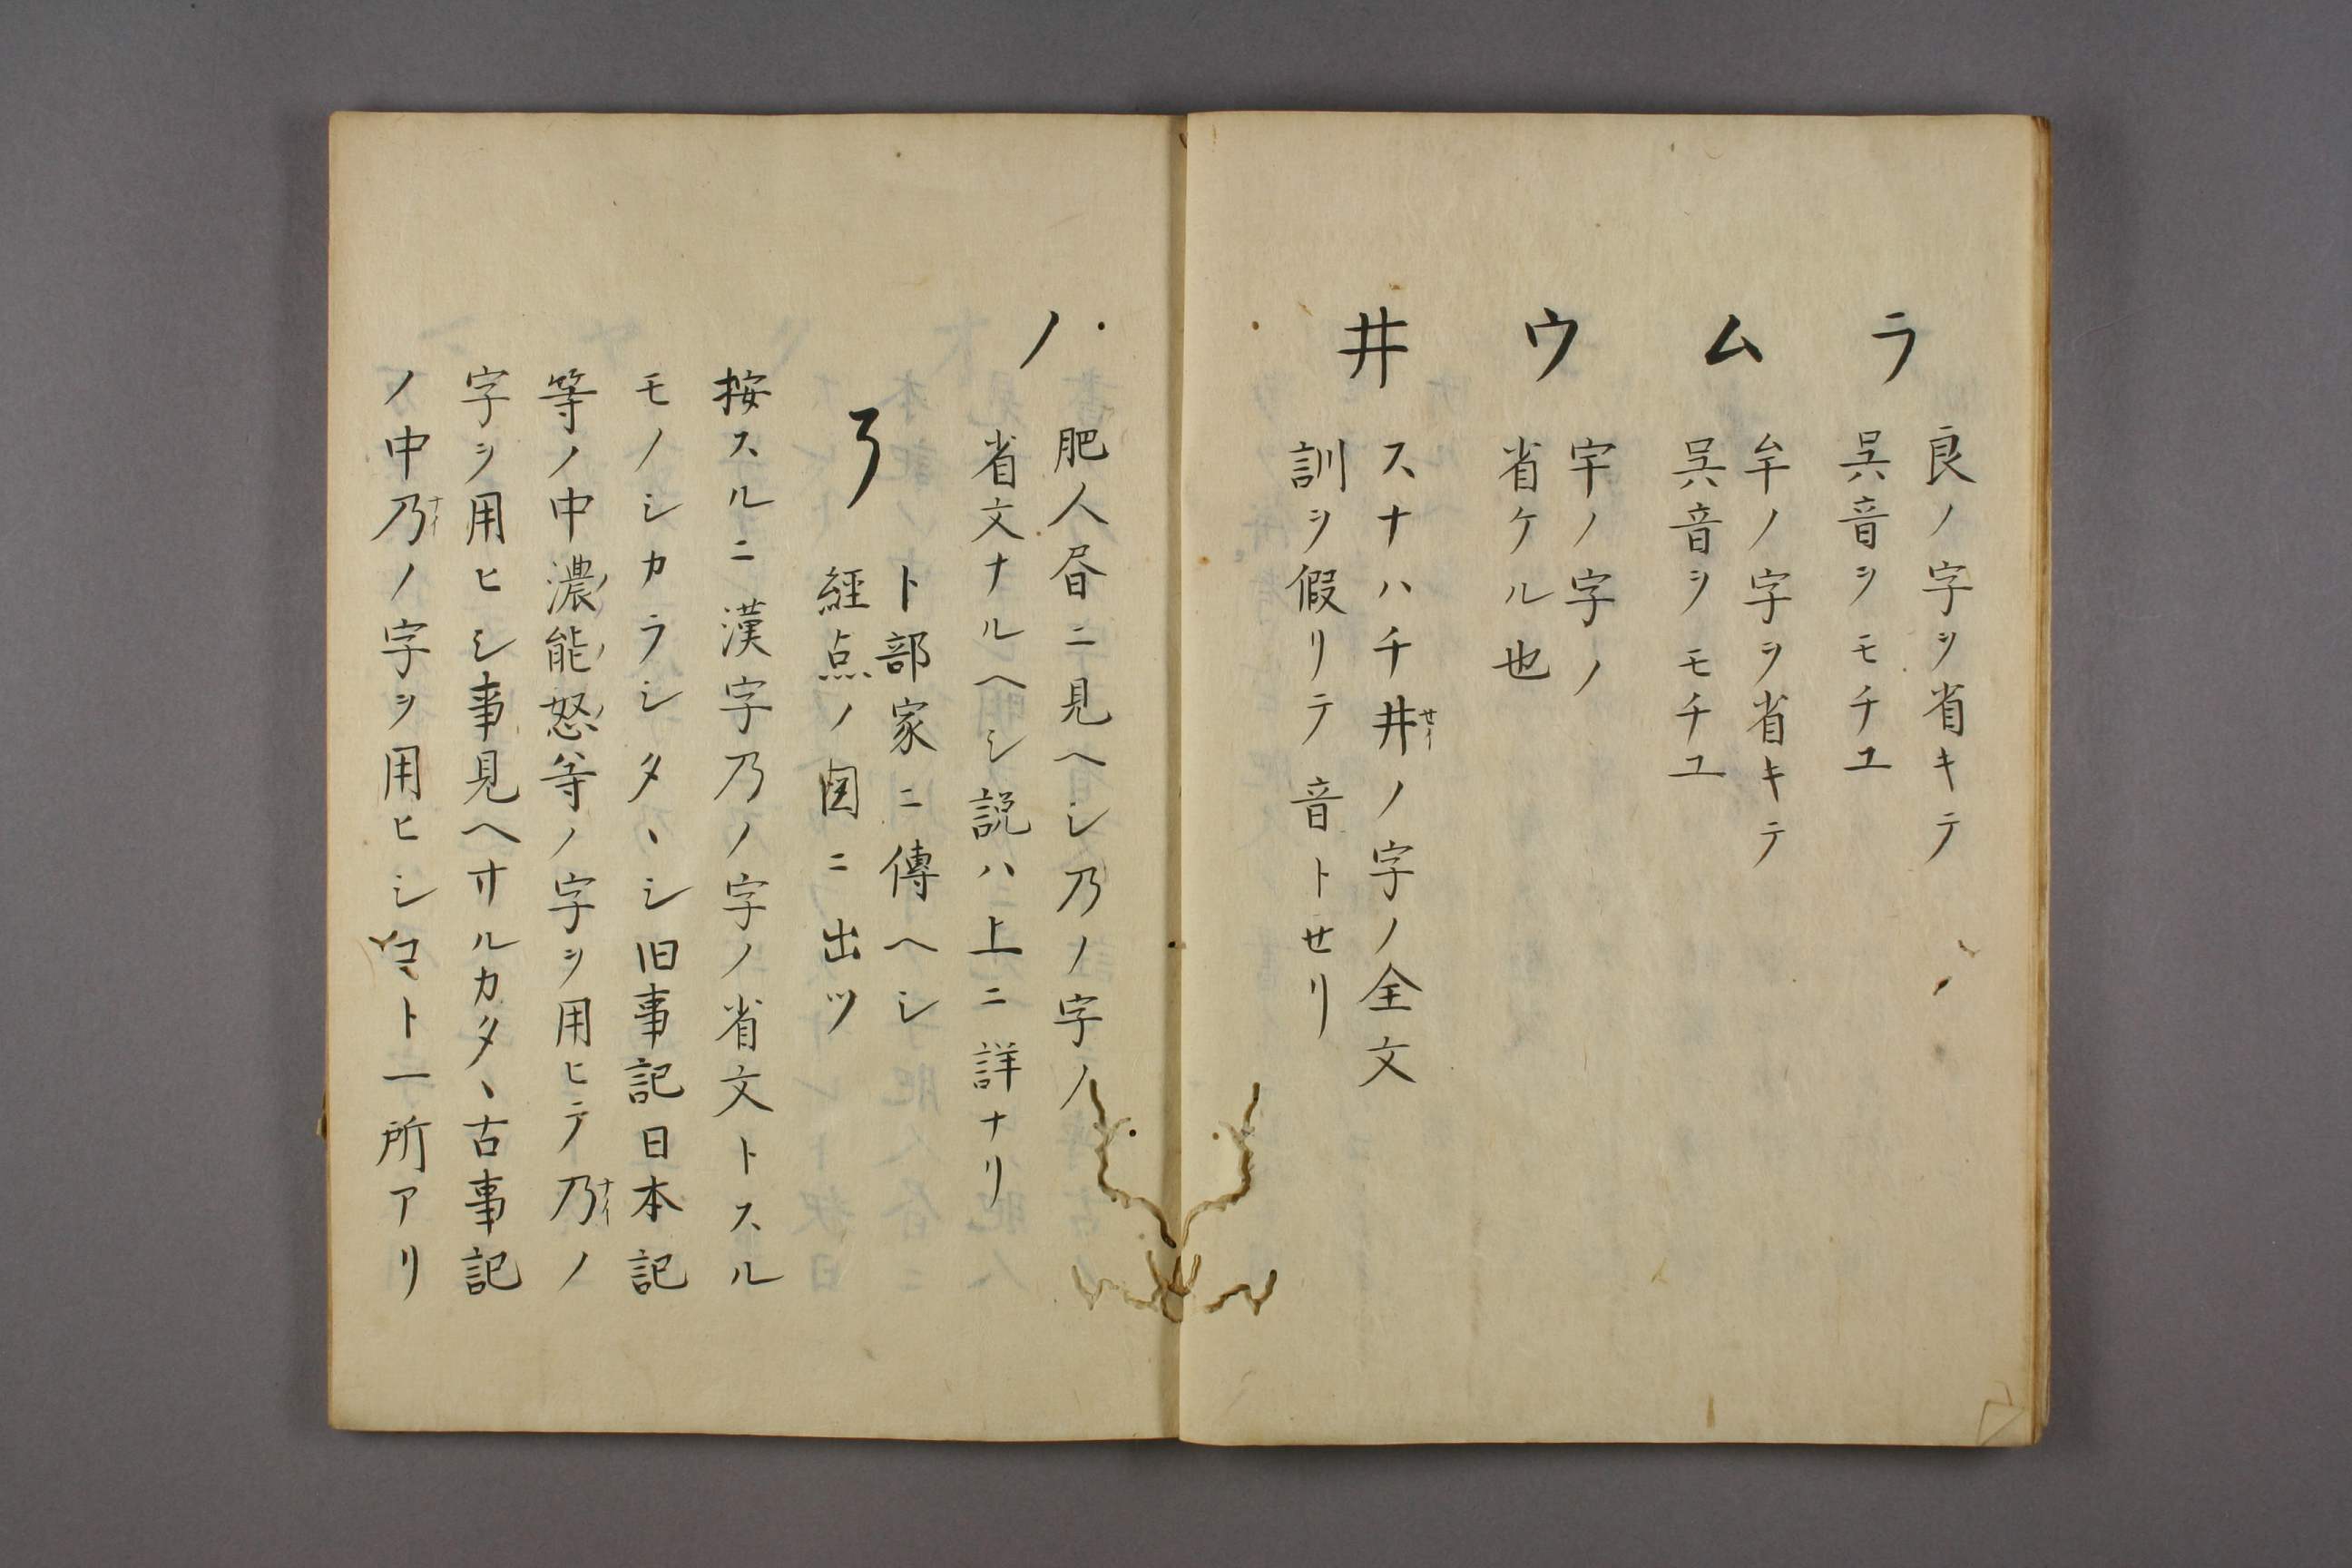 ラ
良ノ字ヲ省キテ
呉音ヲモチユ
ム
牟ノ字ヲ省キテ
呉音ヲモチユ
ウ
宇ノ字ノ
省ケル也
井
スナハチ井セイノ字ノ全文
訓ヲ假リテ音トせリ
ノ
肥人昏ニ見ヘシ乃ノ字ノ
省文ナルヘシ説ハ上ニ詳ナリ
卜部家ニ傳ヘシ
経点ノ図ニ出ツ
按スルニ漢字乃ノ字ノ省文トスル
モノシカラシタヽシ旧事記日本記
等ノ中濃ノ能ノ怒ノ等ノ字ヲ用ヒテ乃ナイノ
字ヲ用ヒシ事見ヘオルカタヽ古事記
ノ中乃ナイノ字ヲ用ヒシコト一所アリ